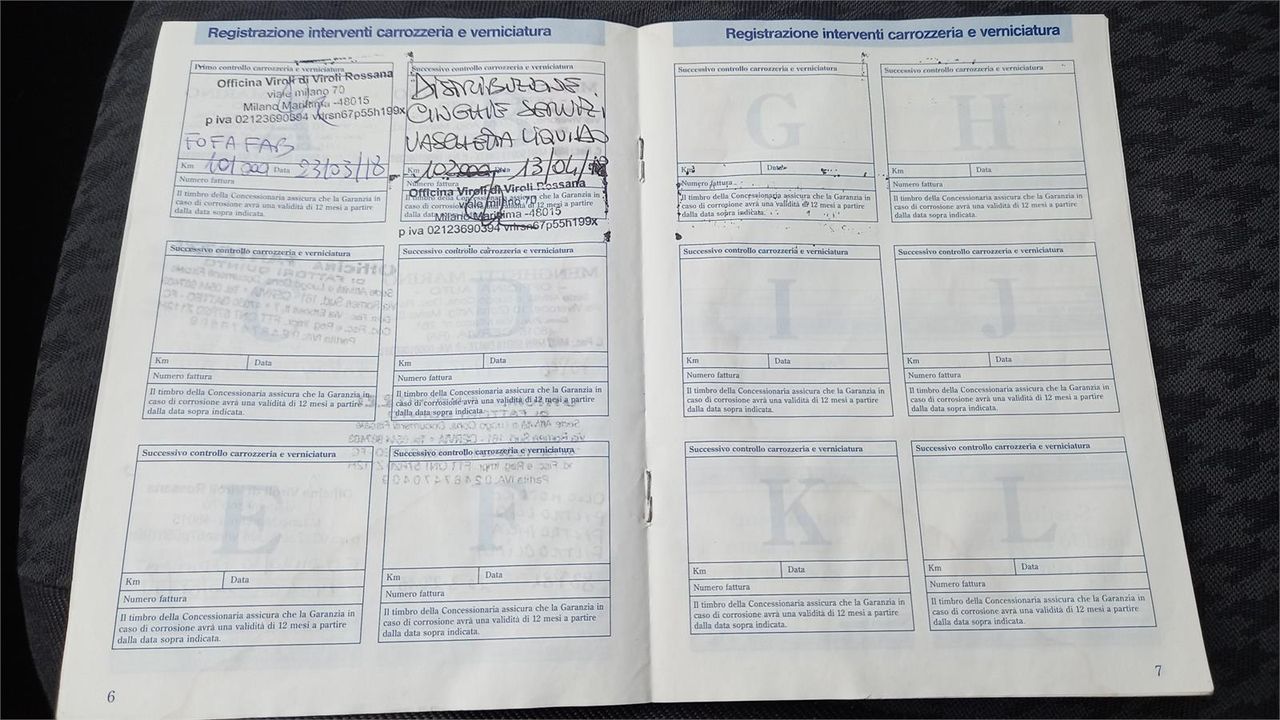 Registrazione interventi carrozzeria e verniciatura
Primo controllo carrozzeria e verniciatura
Officina Viroli di Viroli Rossana
viale milano 70
Milano Marittima -48015
p iva 02123690394 vrlrsn67p55h199x
FOFA FAB
Km 101000 Data 23/03/18
Numero fattura
Il timbro della Concessionaria assicura che la Garanzia in
caso di corrosione avrà una validità di 12 mesi a partire
dalla data sopra indicata.
Successivo controllo carrozzeria e verniciatura
DISTRIBUZIONE
CINGHIE SERVIZI
VASCHETTA LIQUIDO
Km 102000 Data 13/04/18
Numero fattura
Officina Viroli di Viroli Rossana
viale milano 70
Milano Marittima -48015
p iva 02123690394 vrlrsn67p55h199x
Il timbro della Concessionaria assicura che la Garanzia in
caso di corrosione avrà una validità di 12 mesi a partire
dalla data sopra indicata.
Successivo controllo carrozzeria e verniciatura
Km Data
Numero fattura
Il timbro della Concessionaria assicura che la Garanzia in
caso di corrosione avrà una validità di 12 mesi a partire
dalla data sopra indicata.
Successivo controllo carrozzeria e verniciatura
D
Km Data
Numero fattura
Il timbro della Concessionaria assicura che la Garanzia in
caso di corrosione avrà una validità di 12 mesi a partire
dalla data sopra indicata.
Successivo controllo carrozzeria e verniciatura
E
Km Data
Numero fattura
Il timbro della Concessionaria assicura che la Garanzia in
caso di corrosione avrà una validità di 12 mesi a partire
dalla data sopra indicata.
Successivo controllo carrozzeria e verniciatura
F
Km Data
Numero fattura
Il timbro della Concessionaria assicura che la Garanzia in
caso di corrosione avrà una validità di 12 mesi a partire
dalla data sopra indicata.
6
Registrazione interventi carrozzeria e verniciatura
Successivo controllo carrozzeria e verniciatura
G
Km Data
Numero fattura
Il timbro della Concessionaria assicura che la Garanzia in
caso di corrosione avrà una validità di 12 mesi a partire
dalla data sopra indicata.
Successivo controllo carrozzeria e verniciatura
H
Km Data
Numero fattura
Il timbro della Concessionaria assicura che la Garanzia in
caso di corrosione avrà una validità di 12 mesi a partire
dalla data sopra indicata.
Successivo controllo carrozzeria e verniciatura
I
Km Data
Numero fattura
Il timbro della Concessionaria assicura che la Garanzia in
caso di corrosione avrà una validità di 12 mesi a partire
dalla data sopra indicata.
Successivo controllo carrozzeria e verniciatura
J
Km Data
Numero fattura
Il timbro della Concessionaria assicura che la Garanzia in
caso di corrosione avrà una validità di 12 mesi a partire
dalla data sopra indicata.
Successivo controllo carrozzeria e verniciatura
K
Km Data
Numero fattura
Il timbro della Concessionaria assicura che la Garanzia in
caso di corrosione avrà una validità di 12 mesi a partire
dalla data sopra indicata.
Successivo controllo carrozzeria e verniciatura
L
Km Data
Numero fattura
Il timbro della Concessionaria assicura che la Garanzia in
caso di corrosione avrà una validità di 12 mesi a partire
dalla data sopra indicata.
7